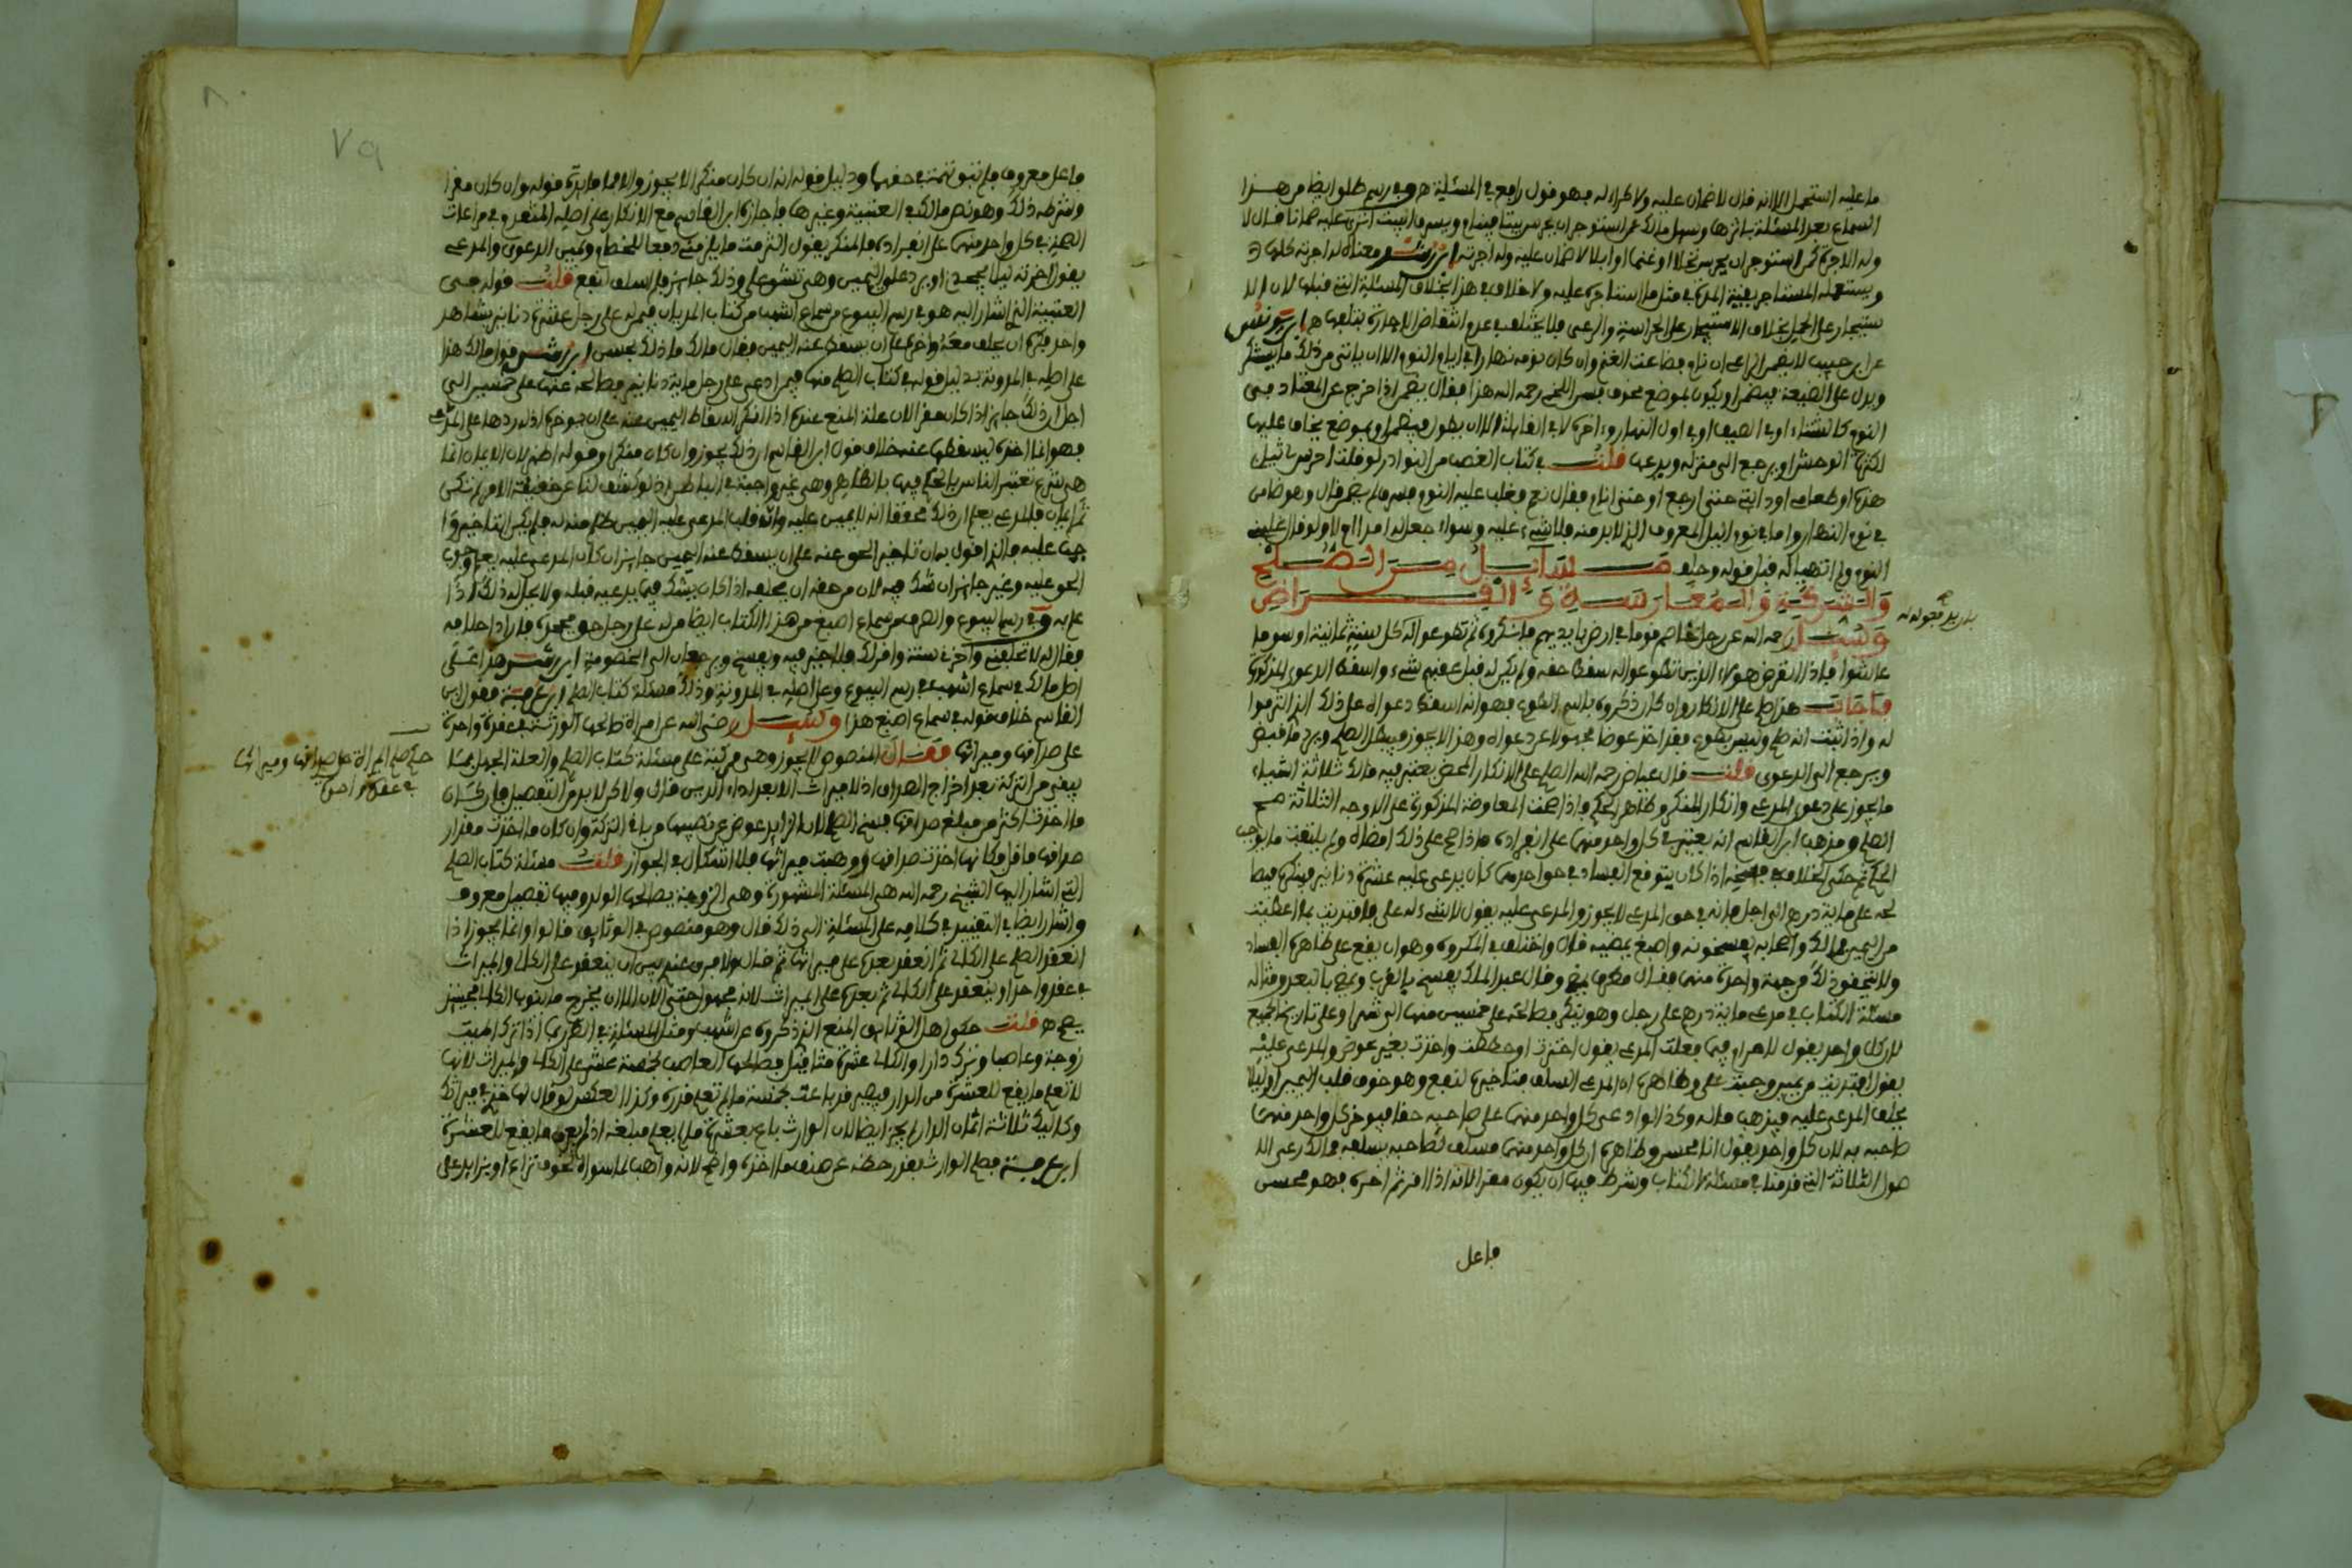 ما عليه استحمل الا انه قال لا ضمان عليه ولا كراء له فهو قول رابع في المسئلة ه وفي رسم حلوا ايضا من هذا
السماع بعد المسئلة باثرها وسئل مالك عمن استوجر ان يحرس بيتا فينام ويسرق البيت اترى عليه ضمانا قال لا
وله الاجرة كمن استوجر ان يحرس نخلا او غنما او ابلا لا ضمان عليه وله اجرته ابن رشد ومعناه له اجرته كلها
ويستعمله المستاجر بقية المدة في مثل ما استاجره عليه ولا خلاف في هذا بخلاف المسئلة التي قبلها لان الا
ستيجار على الحمل بخلاف الاستيجار على الحراسة والرعي فلا يختلف في عدم انتقاض الاجارة بتلفها ه ابن يونس
عن ابن حبيب لا يضمن الراعي ان نام فضاعت الغنم وان كان نومه نهارا في ايام النوم الا ان ياتي من ذلك ما يستنكر
ويدل على الضيعة فيضمن او يكون بموضع مخوف فسر اللخمي رحمه الله هذا فقال يضمن اذا خرج عن المعتاد في
النوم كالشتاء او في الصيف او في اول النهار وءاخره لا في القايلة الا ان يطول فيضمن او بموضع يخاف عليها
لكثرة الوحش او يرجع الى منزله ويدعها قلت في كتاب الغصب من النوادر لو قلت احرس ثيابي
هذه او طعامه او دابتي حتى ارجع او حتى انام فقال نعم فغلب عليه النوم فسرقا لم يضمن قال وهو ضامن
في نوم النهار واما في نوم الليل المعروف الذي لا بد منه فلا شيء عليه وسواء جعل له امرا ام لا ولو قال غلبني
النوم ولم انتهبا له قبل قوله وحلف مسائل من الصلح
والشركة والمغارسة والقراض
وسئل رحمه الله عن رجل خاصم قوما في ارض بايديهم فانكروه ثم تطوعوا له كل سنة ثمانية اوسق ما
عاشوا فاذا انقرض هولاء الذين تطوعوا له سقط حقه ولم يكن له قبل عقبهم شيء واسقط الدعوى المذكورة
فاجاب هذا صلح على الانكار وان كان ذكروه باسم الطوع فهو انه اسقط دعواه على ذلك الذي التزموا
له واذا ثبت انه صلح وليس بطوع فقد اخذ عوضا مجهولا عن دعواه وهذا لا يجوز فيبطل الصلح ويرد ما قبض
ويرجع الى الدعوى قلت قال عياض رحمه الله الصلح على الانكار المحض يعتبر فيه مالك ثلاثة اشياء
ما يجوز على دعوى المدعي وانكار المنكر وظاهر الحكم فاذا صحت المعاوضة المذكورة على الاوجه الثلاثة صح
الصلح ومذهب ابن القاسم انه يعتبر في كل واحد منهما على انفراده فاذا صح على ذلك امضاه ولم يلتفت ما يوجب
الحكم ثم حكى الخلاف في فسخه اذا كان يتوقع الفساد في حق احدهما كان يدعي عليه عشرة دنانير فينكره فيصا
لحه على مائة درهم الى اجل فانه في حق المدعي لا يجوز والمدعى عليه يقول لا شيء له علي وافتديت بما اعطيت
من اليمين فمالك واصحابه يفسخونه واصبغ يمضيه قال واختلف في المكروه وهو ان يقع على ظاهره الفساد
ولا يتحقق ذلك من جهة واحدة منهما فقال مطرف يمضي وقال عبد الملك يفسخ بالقرب ويمضي بالبعد ومثاله
مسئلة الكتاب في مدعي مائة درهم على رجل وهو ينكر فصالحه على خمسين منها الى شهر او على تاريخ الجميع
لان كل واحد يقول للاخر فيما فعلت المدعي يقول اخرت او حططت واخذت بغير عوض والمدعى عليه
يقول افتديت من يمين وجبت علي وظاهره ان المدعي اسلف متاخيره لنفع وهو خوف قلب اليمين او ليلا
يحلف المدعى عليه فيذهب ماله وكذا لو ادعى كل واحد منهما على صاحبه حقا فيوخر كل واحد منهما
صاحبه به لان كل واحد يقول انا محسن وظاهره ان كل واحد منهما مسلف لصاحبه بسلفه فمالك رعى الا
صول الثلاثة التي قدمنا في مسئلة الكتاب وشرط فيها ان يكون مقرا لانه اذا اقر ثم اخره فهو محسن
فاعل
فاعل معروف فلم تبق تهمة في حقها ودليل قوله انه ان كان منكرا لا يجوز والا فما فايدة قوله وان كان مقرا
وشرطه ذلك وهو نص مالك في العتبية وغيرها واجازه ابن القاسم مع الانكار على اصله المتقدم في مراعات
الصلح في كل واحد منهما على انفراده فالمنكر يقول التزمت ما يلزمني دفعا للخصام ويمين الدعوى والمدعي
يقول اخرته ليلا يجحدني او يرد علي اليمين وهي تشق علي وذلك جايز فلم اسلف لنفع قلت قوله في
العتبية التي اشار اليه هو في رسم البيوع من سماع اشهب من كتاب المديان فيمن له على رجل عشرة دنانير بشاهد
واحد فكره ان يحلف معه واخره على ان يسقط عنه اليمين فقال مالك ما ذلك بحسن ابن رشد قول مالك هذا
على اصله في المدونة بدليل قوله في كتاب الصلح منها فيمن ادعى على رجل مائة دينار ثم صالحه عنها على خمسين الى
اجل ان ذلك جايز اذا كان مقرا لان علة المنع عنده اذا انكر اسقاط اليمين عنه على ان يوخره اذ له ردها على المدعي
فهو انما اخره ليسقطها عنه خلاف قول ابن القاسم ان ذلك يجوز وان كان منكرا وقوله اظهر لان الايمان انما
هي شرع تعبد الناس بالحكم فيها بالظاهر وهي غير واجبة في الباطن اذ لو كشف لنا عن حقيقة الامر لم تكن
ثم ايمان فالمدعي يعلم ان ذلك محققا انه لا يمين عليه وانه قلب المدعى عليه اليمين ظلم منه له فلم يكن التاخير جرا
جب عليه فالذي اقول به ان تاخير الحق عنه على ان يسقط عنه اليمين جايز ان كان المدعى عليه يعلم وجوب
الحق عليه وغير جايز ان شك فيه لان من حقه ان يحلفه اذا كان يشك فيما يدعيه قبله ولا يحل له ذلك اذا
علم به وفي رسم البيوع والصرف من سماع اصبغ من هذا الكتاب ايضا من له على رجل حق فجحده فاراد احلافه
فقال له لا تحلفني واخرني سنة واقر لك فلا خير فيه ويفسخ ويرجعان الى الخصومة ابن رشد هذا على
اصل مالك في سماع اشهب في رسم البيوع وعلى اصله في المدونة وذلك مسئلة كتاب الصلح ابن عرفة فقول ابن
القاسم خلاف قوله في سماع اصبغ هذا وسئل رضي الله عن امراة صالحها الورثة في عقدة واحدة
على صداقها وميراثها فقال المنصوص لا يجوز وهي مركبة على مسئلة كتاب الصلح والعلة الجهل بما
يبقى من التركة بعد اخراج الصداق اذ لا ميراث الا بعد اداء الدين قال ولاكن لا بد من التفصيل فان كان
ما اخذت اكثر من مبلغ صداقها فسخ الصلح لان الزايد عوض عن نصيبها من باقي التركة وان كان ما اخذت مقدار
صداقها فاقل فكانها اخذت صداقها ووهبت ميراثها فلا اشكال في الجواز قلت مسئلة كتاب الصلح
التي اشار اليها الشيخ رحمه الله هي المسئلة المشهورة وهي الزوجة يصالحها الولد وفيها تفصيل معروف
واشار ايضا في التقييد في كلامه على المسئلة الى ذلك قال وهو منصوص في الوثايق قالوا وانما يجوز اذا
انعقد الصلح على الكالئ ثم انعقد بعده على ميراثها ثم قال ولا فرق عندي بين ان ينعقد على الكالئ والميراث
في عقد واحد او ينعقد على الكالئ ثم بعده على الميراث لانه مجهول حتى الان الا ان يخرج ما ينوب الكالئ فحينئذ
يصح ه قلت حكوا اهل الوثايق المنع الذي ذكروه عن اشهب ومثل المسئلة في الطرر بما اذا ترك الميت
زوجة وعاصبا وترك دارا والكالئ عشرة مثاقيل فصالحها العاصب بخمسة عشر على الكالئ والميراث لانها
لا تعلم ما يقع للعشرة من الدار فيصير قد باعت بخمسة ما لم تعلم قدره وكذا العكس لو قال لها خذي ميراثك
وكاليك ثلاثة اثمان الدار لم يجز ايضا لان الوارث باع بعشرة ما لم يعلم مبلغه اذ لم يعرف ما يقع للعشرة
ابن عرفة صلح الوارث بقدر حظه عن صنف ما اخذه واضح لانه واهب لما سواه
حكم صلح المراة على صداقها وميراثها
في عقدة واحدة
٧٩